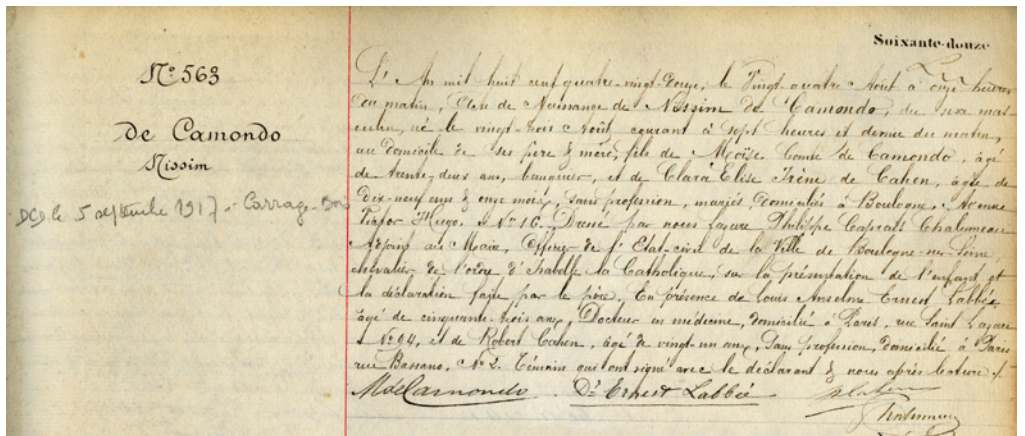 Soixante-douze
N° 563
de Camondo
Nissim
DCD le 5 septembre 1917 -
L'An mil huit cent quatre-vingt-douze, le Vingt-quatre Août à onze heures
du matin, Acte de Naissance de Nissim de Camondo, du sexe mas-
culin, né le vingt trois Août courant à sept heures et demie du matin,
au domicile de ses père & mère, fils de Moïse Comte de Camondo, âgé
de trente-deux ans, banquier, et de Clara Elise Irène de Cahen, âgée de
dix-neuf ans & onze mois, sans profession, mariés, domiciliés à Boulogne, Avenue
Victor Hugo, N° 16. Dressé par nous Lazare Philippe Caprais Chalumeau
Adjoint au Maire, Officier de l'Etat-civil de la Ville de Boulogne-sur-Seine,
chevalier de l'ordre d'Isabelle la Catholique, sur la présentation de l'enfant et
la déclaration faite par le père, En présence de Louis Anselme Ernest Labbée
âgé de cinquante-trois ans, Docteur en médecine, domicilié à Paris, rue Saint Lazare
N° 94, et de Robert Cahen, âgé de vingt-un ans, Sans profession, domicilié à Paris
rue Bassano, N° 2. Témoins qui ont signé avec le déclarant & nous après lecture ./.
M de Camondo Dr Ernest Labbée R Cahen
Chalumeau